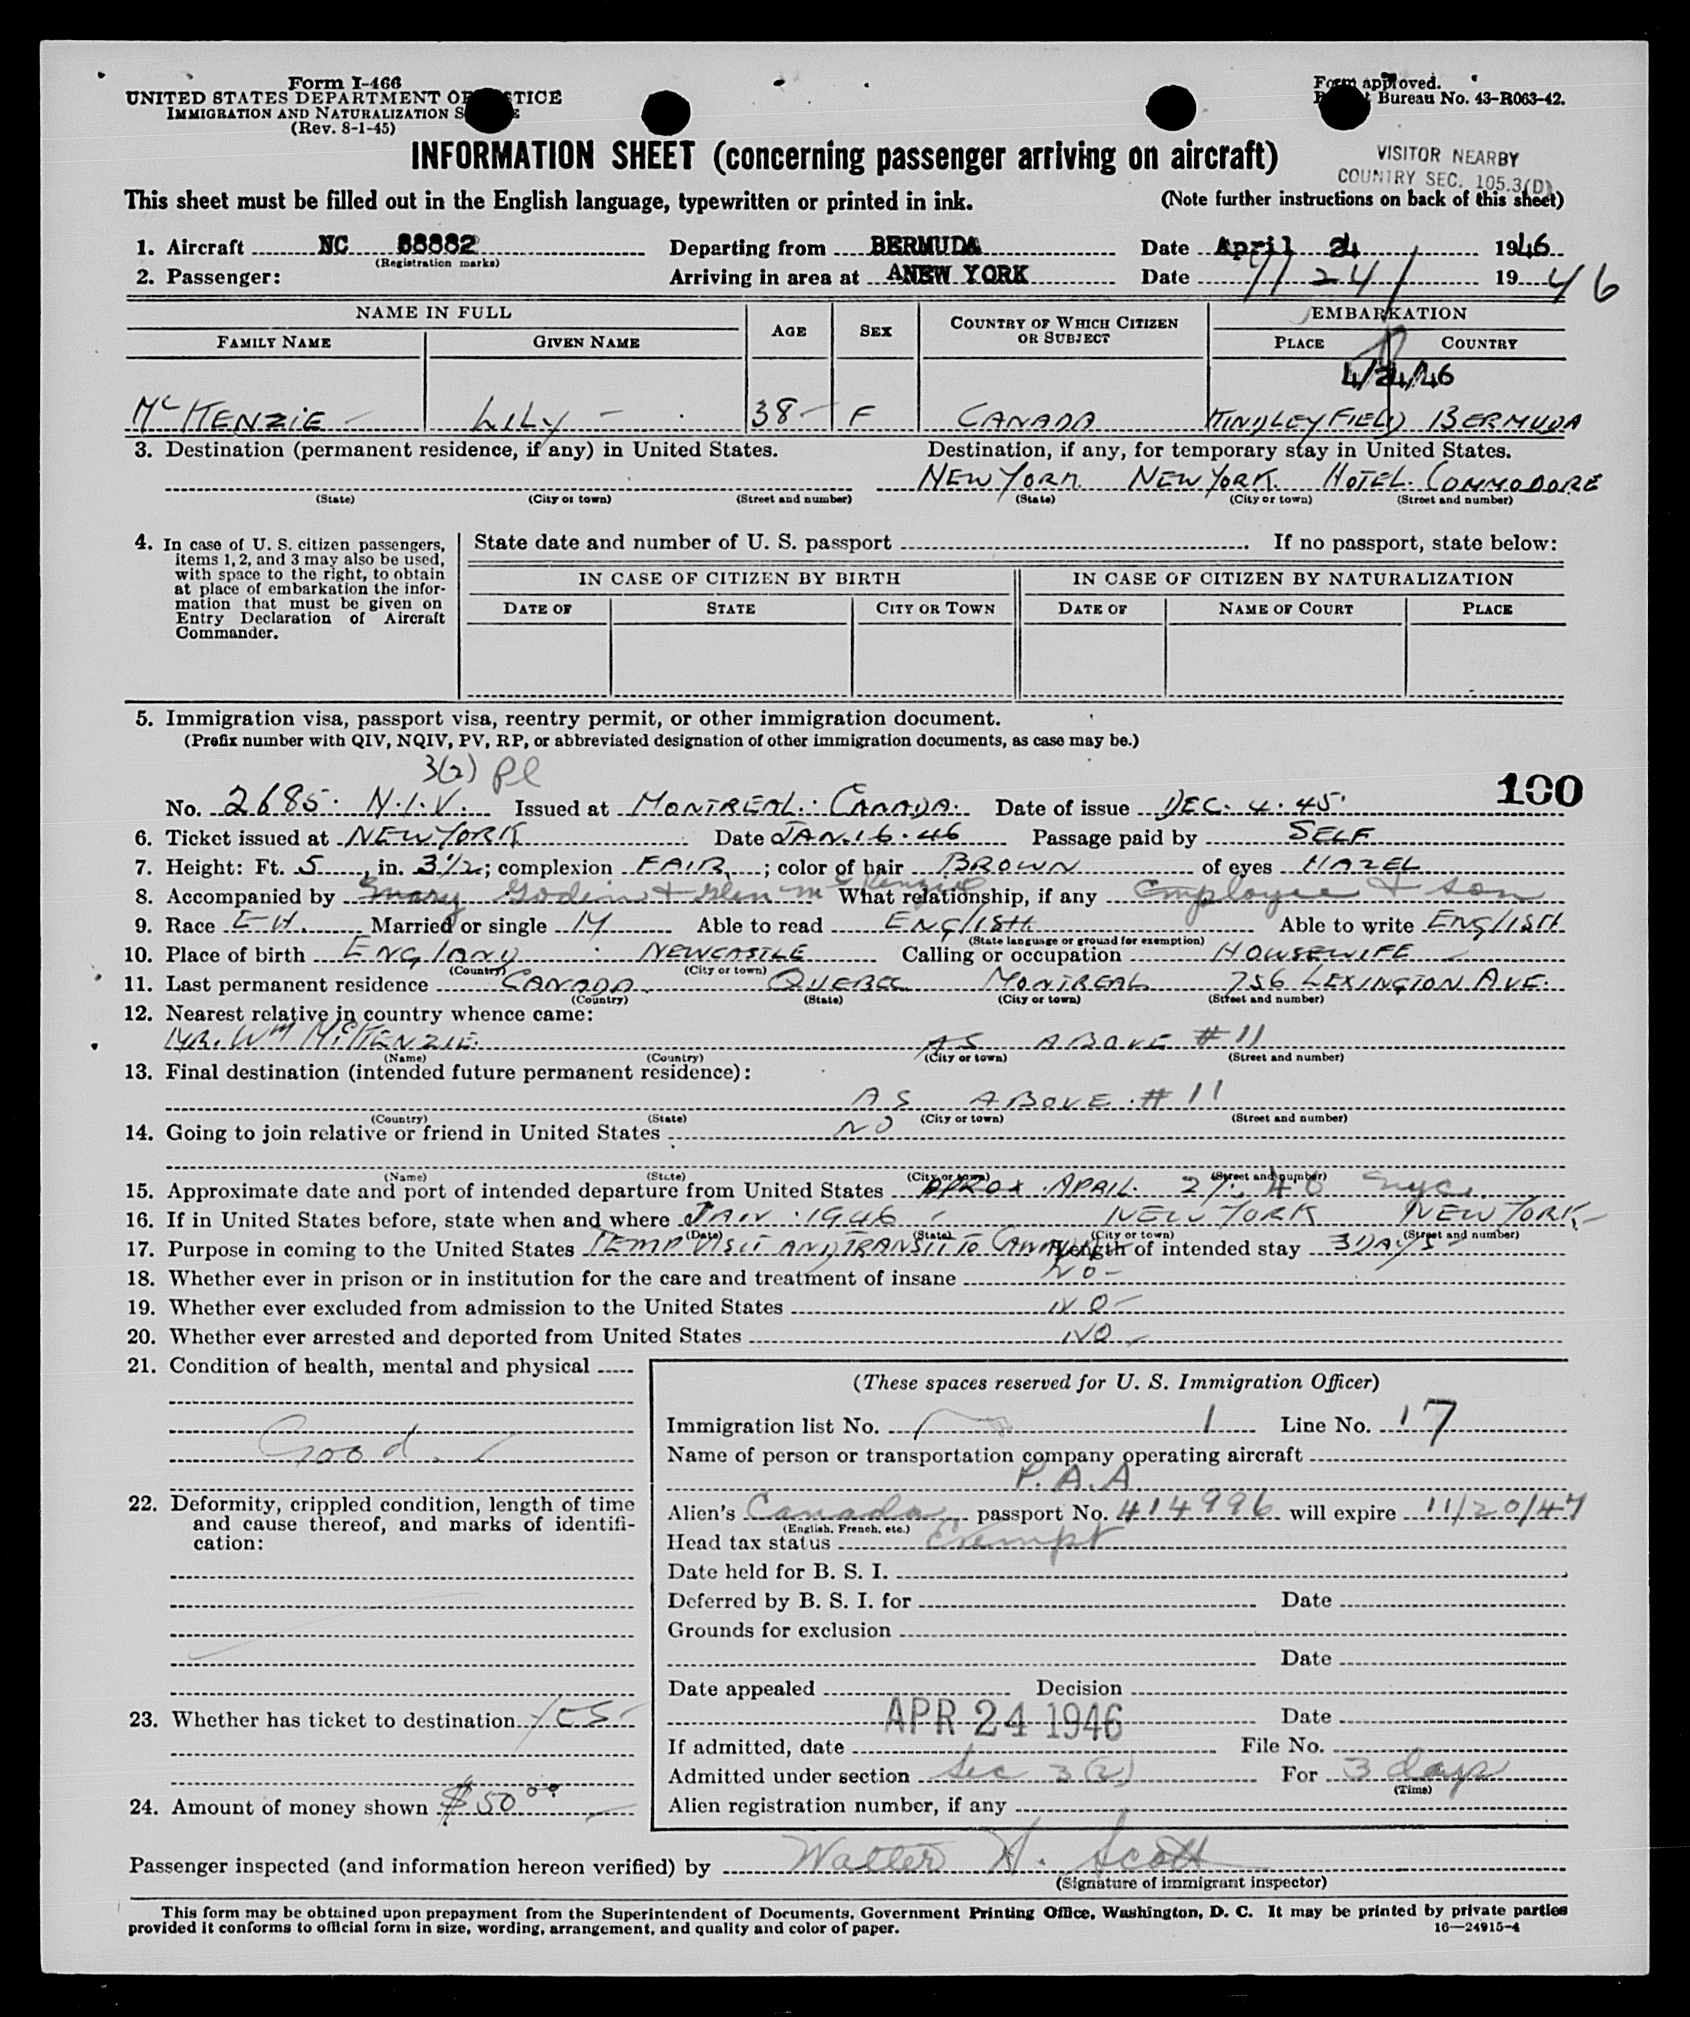 Form I-466
UNITED STATES DEPARTMENT OF JUSTICE
IMMIGRATION AND NATURALIZATION SERVICE
(Rev. 8-1-45)
Form approved.
Budget Bureau No. 43-R063-42.
INFORMATION SHEET (concerning passenger arriving on aircraft)
VISITOR NEARBY
COUNTRY SEC. 105.3(D)
This sheet must be filled out in the English language, typewritten or printed in ink. (Note further instructions on back of this sheet)
1. Aircraft NC 88882 Departing from BERMUDA Date April 24 1946
(Registration marks)
2. Passenger: Arriving in area at NEW YORK Date 24 1946
NAME IN FULL AGE SEX COUNTRY OF WHICH CITIZEN OR SUBJECT EMBARKATION
FAMILY NAME GIVEN NAME PLACE COUNTRY
4/24/46
McKENZIE LILY 38 F CANADA KINDLEY FIELD BERMUDA
3. Destination (permanent residence, if any) in United States. Destination, if any, for temporary stay in United States.
NEW YORK NEW YORK HOTEL COMMODORE
(State) (City or town) (Street and number) (State) (City or town) (Street and number)
4. In case of U. S. citizen passengers, items 1, 2, and 3 may also be used, with space to the right, to obtain at place of embarkation the information that must be given on Entry Declaration of Aircraft Commander.
State date and number of U. S. passport If no passport, state below:
IN CASE OF CITIZEN BY BIRTH IN CASE OF CITIZEN BY NATURALIZATION
DATE OF STATE CITY OR TOWN DATE OF NAME OF COURT PLACE
5. Immigration visa, passport visa, reentry permit, or other immigration document.
(Prefix number with QIV, NQIV, PV, RP, or abbreviated designation of other immigration documents, as case may be.)
3(2) Pl
100
No. 2685. N.I.V. Issued at MONTREAL. CANADA. Date of issue DEC. 4. 45.
6. Ticket issued at NEW YORK Date JAN. 16. 46 Passage paid by SELF
7. Height: Ft. 5, in. 3½; complexion FAIR; color of hair BROWN of eyes HAZEL
8. Accompanied by Mary Godin + Glen McKenzie What relationship, if any Employee + son
9. Race EH. Married or single M Able to read ENGLISH Able to write ENGLISH
(State language or ground for exemption)
10. Place of birth ENGLAND NEWCASTLE Calling or occupation HOUSEWIFE
(Country) (City or town)
11. Last permanent residence CANADA QUEBEC MONTREAL 756 LEXINGTON AVE.
(Country) (State) (City or town) (Street and number)
12. Nearest relative in country whence came:
MR. Wm McKENZIE. AS ABOVE #11
(Name) (Country) (City or town) (Street and number)
13. Final destination (intended future permanent residence):
AS ABOVE #11
(Country) (State) (City or town) (Street and number)
14. Going to join relative or friend in United States NO
(Name) (State) (City or town) (Street and number)
15. Approximate date and port of intended departure from United States APROX. APRIL. 27. 46 nyc
16. If in United States before, state when and where JAN. 1946 NEW YORK NEW YORK
(Date) (State) (City or town) (Street and number)
17. Purpose in coming to the United States TEMP VISIT AND TRANSIT TO CANADA Length of intended stay 3 DAYS
18. Whether ever in prison or in institution for the care and treatment of insane NO
19. Whether ever excluded from admission to the United States NO
20. Whether ever arrested and deported from United States NO
21. Condition of health, mental and physical
Good.
22. Deformity, crippled condition, length of time and cause thereof, and marks of identification:
23. Whether has ticket to destination YES
24. Amount of money shown $50.00
(These spaces reserved for U. S. Immigration Officer)
Immigration list No. 1 Line No. 17
Name of person or transportation company operating aircraft
P.A.A
Alien's Canada passport No. 414996 will expire 11/20/47
(English, French, etc.)
Head tax status Exempt
Date held for B. S. I.
Deferred by B. S. I. for Date
Grounds for exclusion
Date
Date appealed Decision
APR 24 1946 Date
If admitted, date File No.
Admitted under section Sec 3(2) For 3 days
(Time)
Alien registration number, if any
Passenger inspected (and information hereon verified) by Walter H. Scott
(Signature of immigrant inspector)
This form may be obtained upon prepayment from the Superintendent of Documents, Government Printing Office, Washington, D. C. It may be printed by private parties
provided it conforms to official form in size, wording, arrangement, and quality and color of paper. 16—24915-4